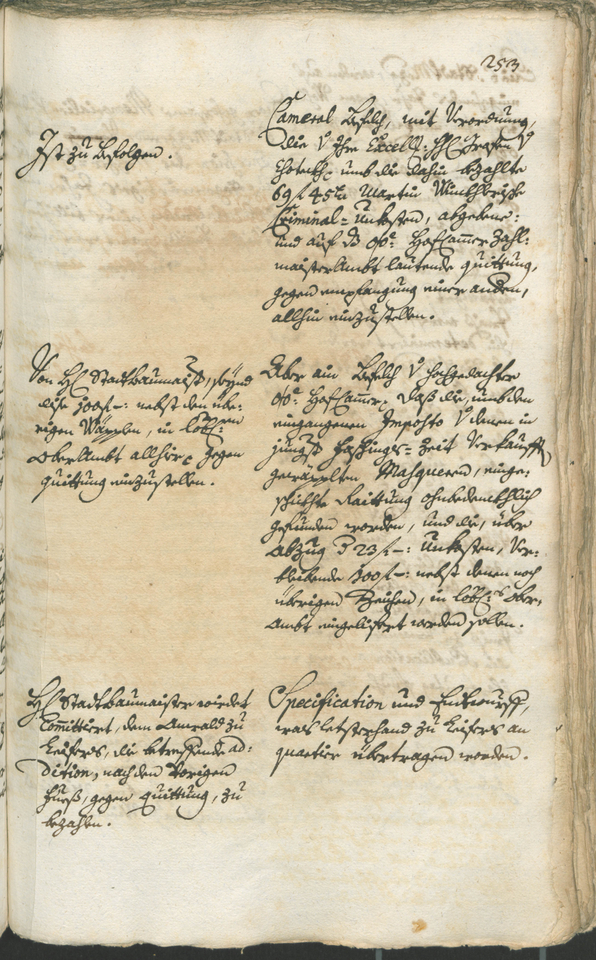 253
Ist zu befolgen.
Cameral Befelch, mit Verordnung,
die V Ihre Excell: H: Grafen V
umb die dahin bezahlte
69 f 45 Martin
Criminal-Unkosten, abgebene:
und auf d Hofcammer Zahl:
maisterambt lautende quittung,
gegen empfangung einer andern,
allhin einzustellen.
Von H: Stadtbaumaist:, seynd
dise 100 f —: nebst den übe:
rigen in löbl:
Oberambt allhier gegen
quittung einzustellen.
Aber ein Befelch V hochgedachter
Hofcammer. Daß die, umb den
eingangenen Imposto V denen in
jüngst Faschings-Zeit verkaufften
Masquern, einge:
schickhte Raittung ohnbedenckhlich
gefunden worden, und die, über
Abzug 23 f —: Unkosten, Ver:
bleibende 100 f —: nebst denen noch
übrigen Zeichen, in löbl: Ober:
Ambt eingelifert werden sollen.
H: Stadtbaumaister wirdet
Committiert, dem Anwald zu
Leifers, die betreffende ad:
dition, nach dem vorigen
Fueß, gegen Quittung, zu
bezahlen.
Specification und Entwurff,
was letsterhand zu Leifers an
quartier übertragen worden.